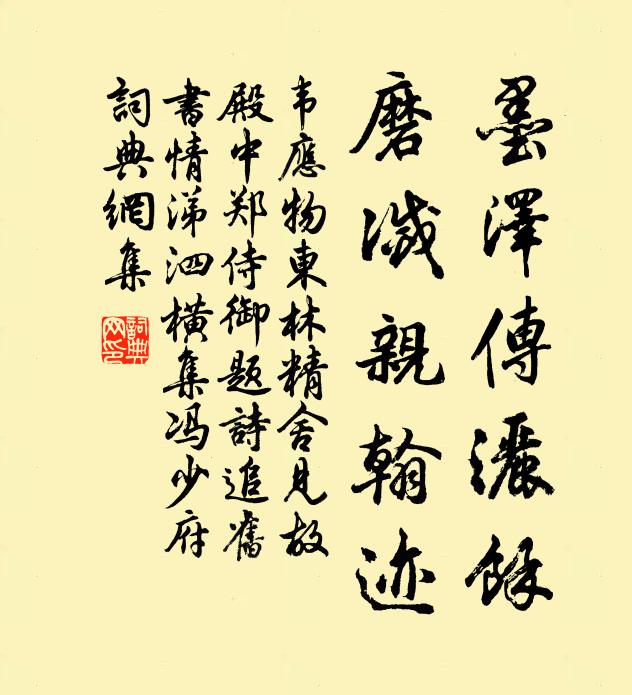 墨澤傳灑餘
磨滅親翰迹
韦應物東林精舍見故
殿中郑侍御題詩追舊
書情涕泗橫集冯少府
詞典網集
詞典網印